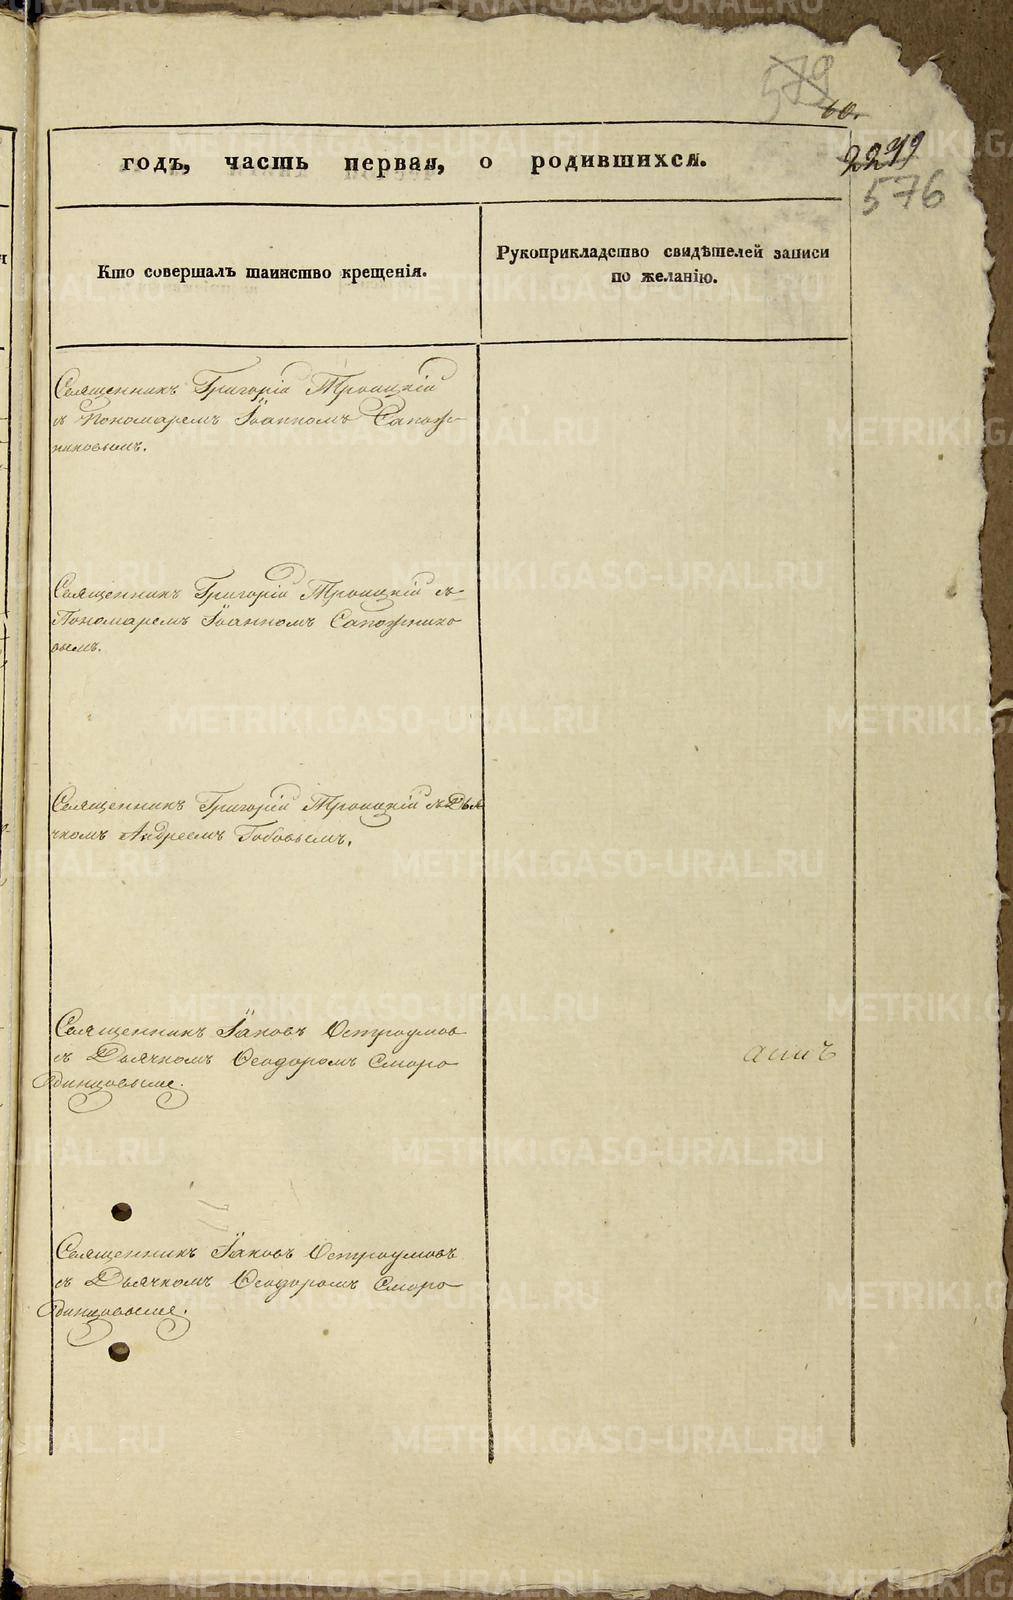 579
60.
2279
576
годъ, часть первая, о родившихся.
Кто совершалъ таинство крещенія.
Рукоприкладство свидѣтелей записи
по желанію.
Священникъ Григорій Троицкій
съ Пономаремъ Іоанномъ Сапож-
никовымъ.
Священникъ Григорій Троицкій съ
Пономаремъ Іоанномъ Сапожнико
вымъ.
Священникъ Григорій Троицкій съ Дья
чкомъ Андреемъ Гобовымъ.
Священникъ Іаковъ Остроумов
съ Дьячкомъ Ѳеодоромъ Сморо
динцовымъ.
Священникъ Іаковъ Остроумовъ
съ Дьячкомъ Ѳеодоромъ Сморо
динцовымъ.
METRIKI.GASO-URAL.RU